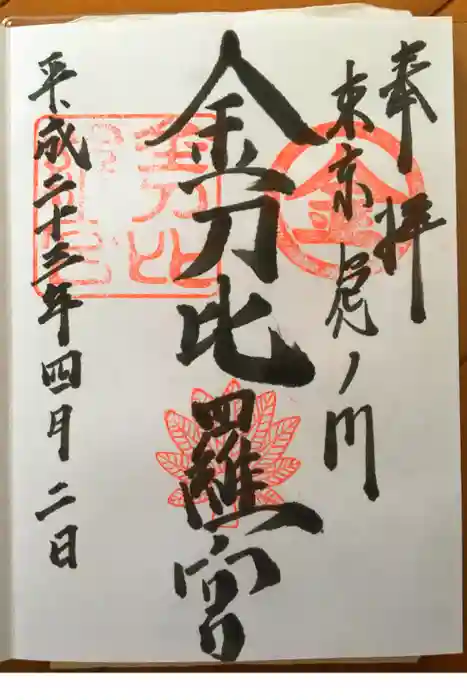 奉拝
東京虎ノ門
金刀比羅宮
平成二十三年四月二日
金
金刀比